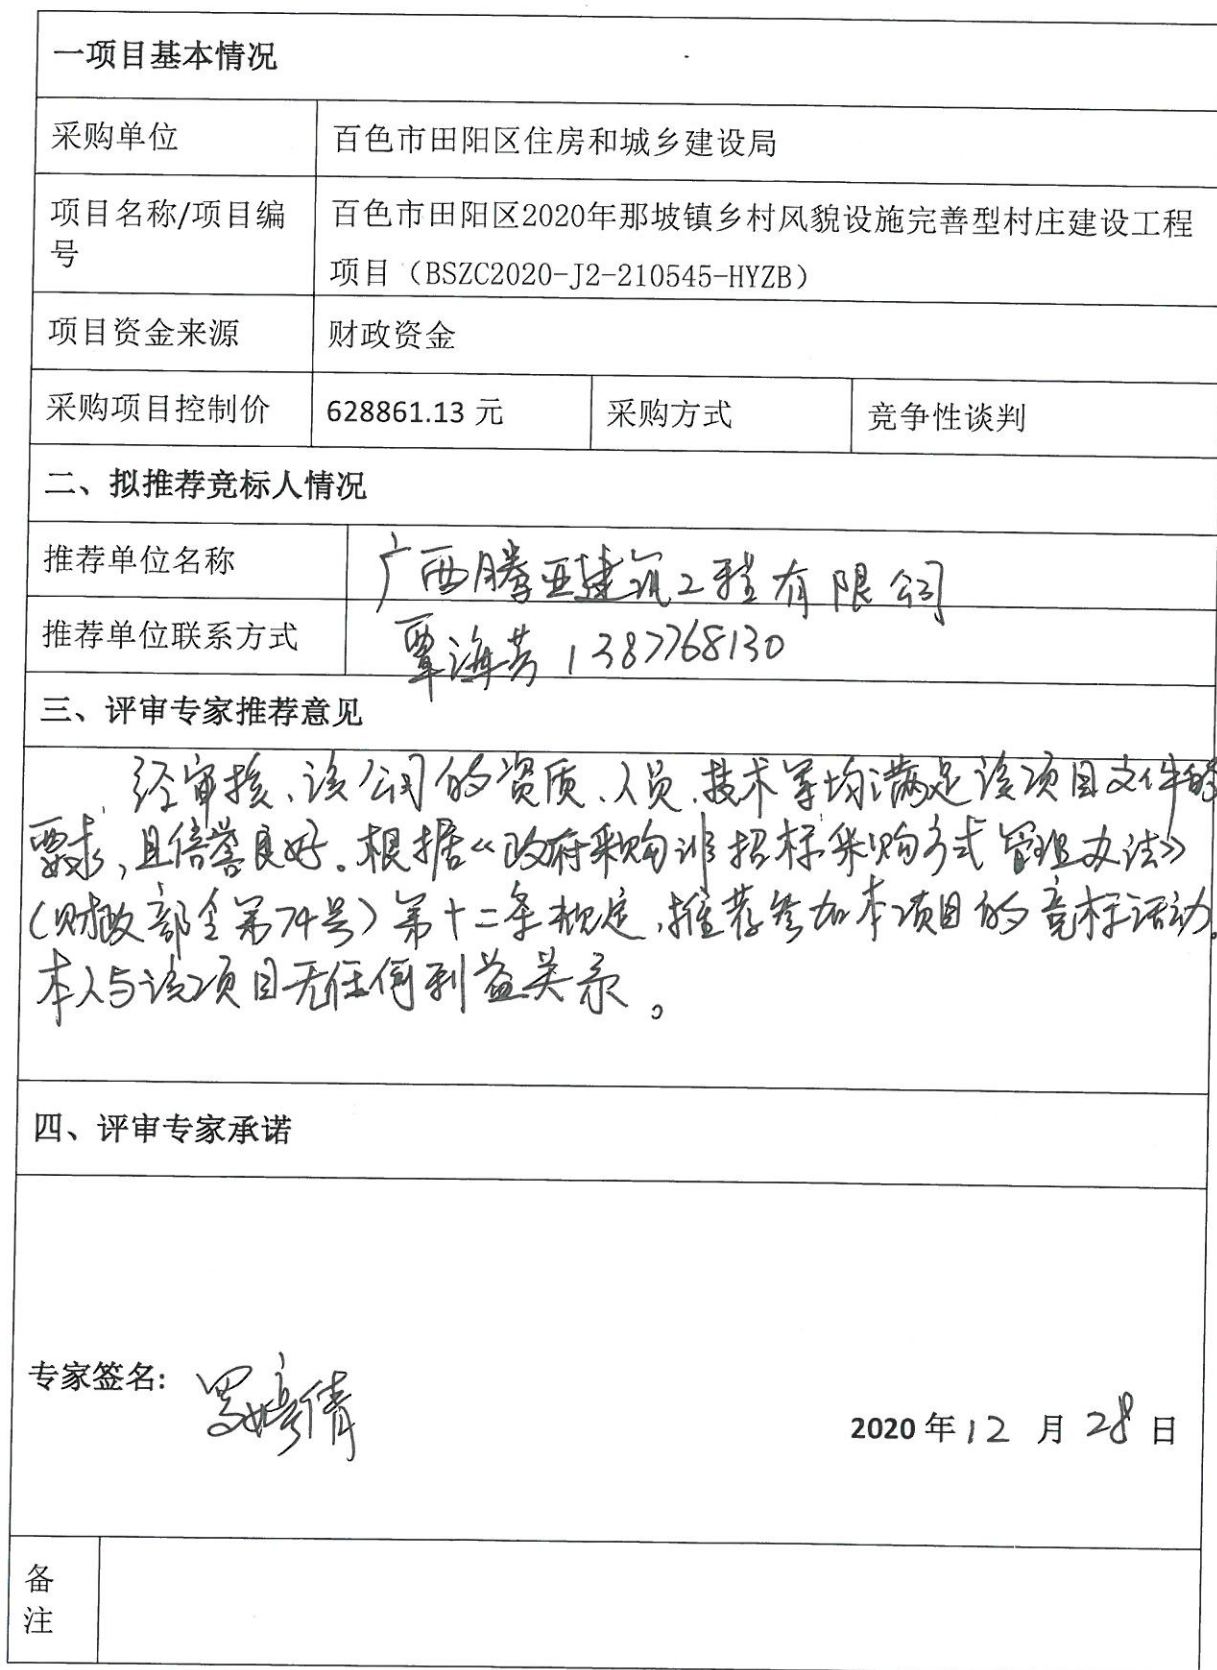 一项目基本情况
采购单位 百色市田阳区住房和城乡建设局
项目名称/项目编 百色市田阳区2020年那坡镇乡村风貌设施完善型村庄建设工程
号 项目（BSZC2020-J2-210545-HYZB）
项目资金来源 财政资金
采购项目控制价 628861.13 元 采购方式 竞争性谈判
二、拟推荐竞标人情况
推荐单位名称 广西腾亚建筑工程有限公司
推荐单位联系方式 覃海芳 1387768130
三、评审专家推荐意见
经审核、该公司的资质、人员、技术等均满足该项目文件的
要求，且信誉良好。根据《政府采购非招标采购方式管理办法》
（财政部令第74号）第十二条规定，推荐参加本项目的竞标活动。
本人与该项目无任何利益关系。
四、评审专家承诺
专家签名: 倩
2020 年 12 月 28 日
备
注